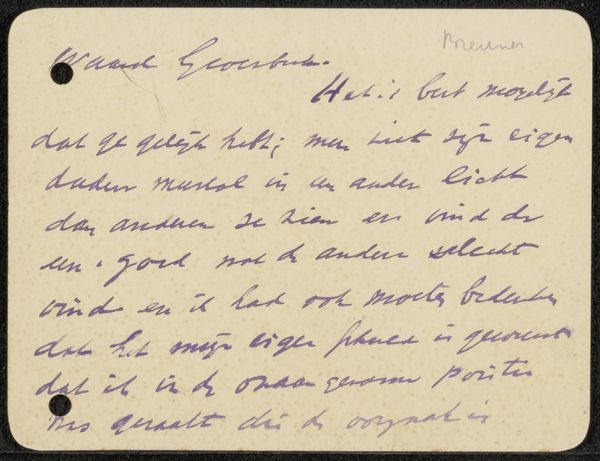 Breitner
Waard
Het is best mogelijk
dat ge gelijk hebt; men ziet zijn eigen
daden meestal in een ander licht
dan anderen ze zien en vind de
een goed wat de andere slecht
vind en ik had ook moeten bedenken
dat het mijn eigen is geweest
dat ik in de onaangename positie
was geraakt die de oorzaak is